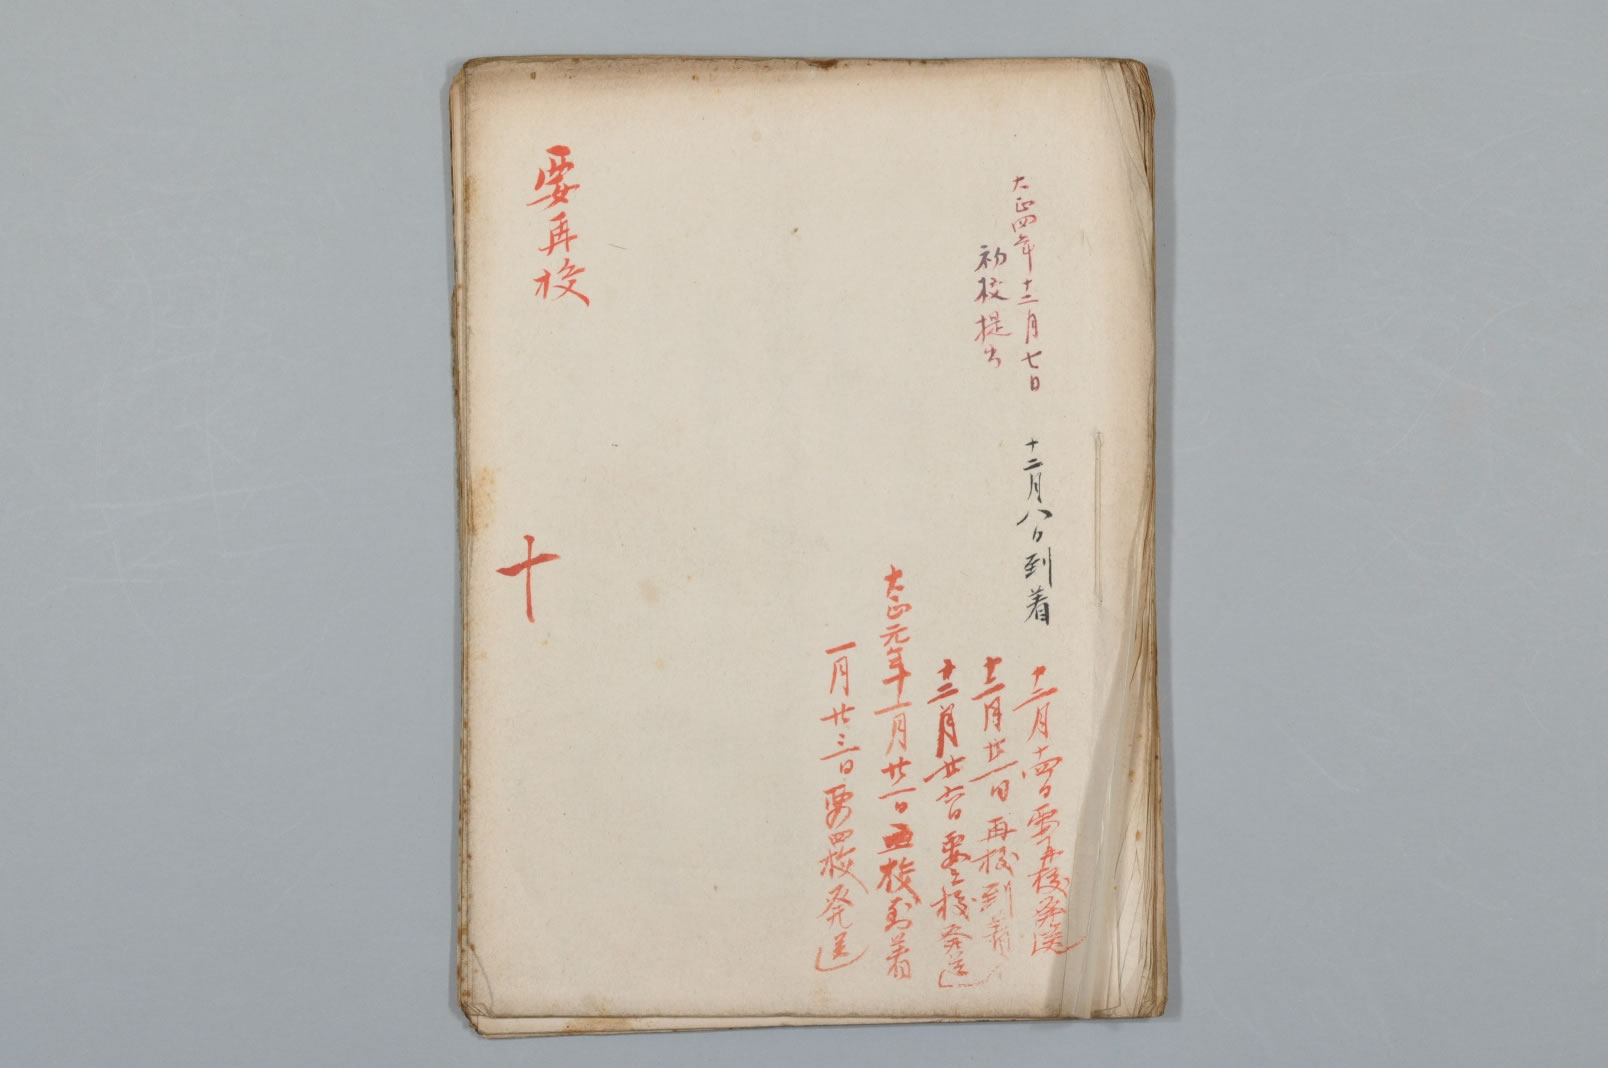 大正四年十二月七日
初校提出
十二月八日到着
十二月十四日要再校発送
十二月廿一日再校到着
十二月廿六日要三校発送
大正元年十一月廿一日三校到着
一月廿三日要四校発送
要再校
十